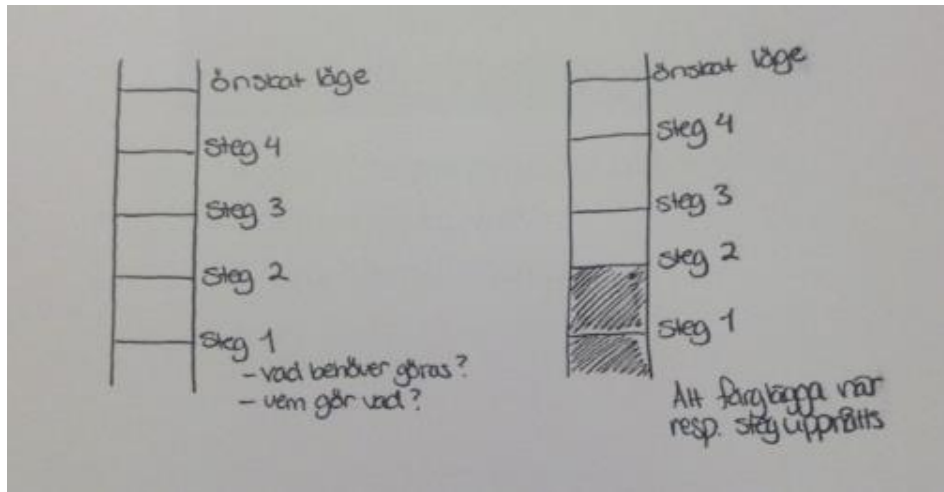 önskat läge
Steg 4
Steg 3
Steg 2
Steg 1
- vad behöver göras?
- vem gör vad?
önskat läge
Steg 4
Steg 3
Steg 2
Steg 1
Att färglägga när
resp. steg uppnåtts